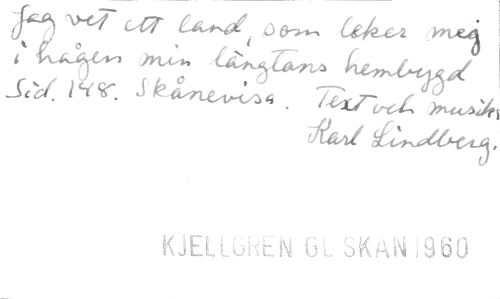 Jag vet ett land, som leker meg
i hågen min längtans hembygd
Sid. 148. Skånevisa. Text och musik:
Karl Lindberg.
KJELLGREN GL SKAN 1960